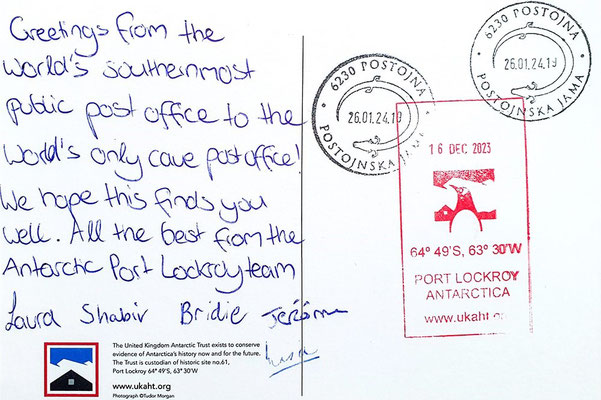 Greetings from the
world's southernmost
public post office to the
world's only cave post office!
We hope this finds you
well. All the best from the
Antarctic Port Lockroy team
Laura Shabir Bridie Jérôme
The United Kingdom Antarctic Trust exists to conserve
evidence of Antarctica's history now and for the future.
The Trust is custodian of historic site no.61,
Port Lockroy 64° 49'S, 63° 30'W
www.ukaht.org
Photograph ©Tudor Morgan
6230 POSTOJNA
26.01.24.19
POSTOJNSKA JAMA
6230 POSTOJNA
26.01.24.19
POSTOJNSKA JAMA
16 DEC 2023
64° 49'S, 63° 30'W
PORT LOCKROY
ANTARCTICA
www.ukaht.org